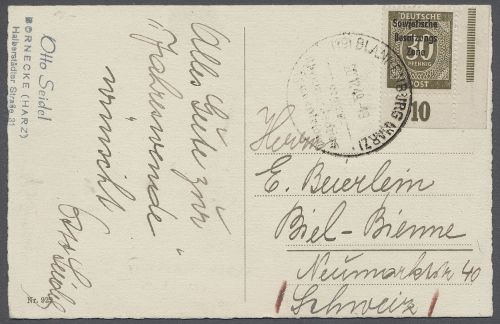 Otto Seidel
BÖRNECKE (HARZ)
Halberstädter Straße 31
Alles Gute zur
"Jahreswende"
wünscht
Otto Seidel
Nr. 925
DEUTSCHE
Sowjetische
Besatzungs
Zone
30
PFENNIG
POST
10
BLANKENBURG (HARZ)
Herrn
E. Beierlein
Biel-Bienne
Neumarktstr 40
Schweiz